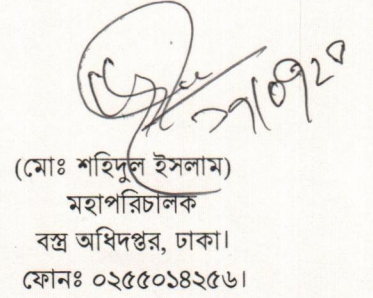 (মোঃ শহিদুল ইসলাম)
মহাপরিচালক
বস্ত্র অধিদপ্তর, ঢাকা।
ফোনঃ ০২৫৫০১৪২৫৬।